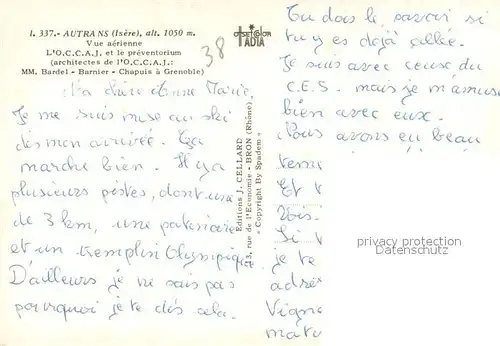 I. 337. - AUTRANS (Isère), alt. 1050 m.
Vue aérienne
L'O.C.C.A.J. et le préventorium
(architectes de l'O.C.C.A.J.:
MM. Bardel - Barnier - Chapuis à Grenoble)
38
TADIA
Ma chère Anne Marie,
Je me suis mise au ski
dès mon arrivée. Ça
marche bien. Il y a
plusieurs pistes, dont une
de 3 km, une patinoire
et un tremplin Olympique.
D'ailleurs je ne sais pas
pourquoi je te dis cela.
Editions J. CELLARD
3, rue de l'Economie - BRON (Rhône)
« Copyright By Spadem »
Tu dois le savoir si
tu y es déjà allée.
Je suis avec ceux du
C.E.S. mais je m'amuse
bien avec eux.
Nous avons eu beau
temp
Et
Si
je te
adre
Vign
matr
privacy protection
Datenschutz